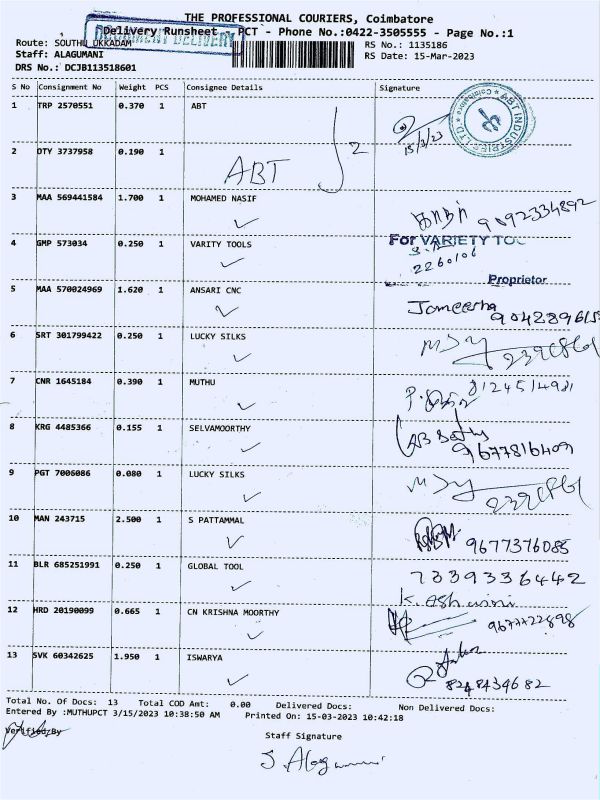 THE PROFESSIONAL COURIERS, Coimbatore
Delivery Runsheet - PCT - Phone No.:0422-3505555 - Page No.:1
Route: SOUTHU UKKADAM
RS No.: 1135186
Staff: ALAGUMANI
RS Date: 15-Mar-2023
DRS No.: DCJB113518601
S No Consignment No Weight PCS Consignee Details Signature
1 TRP 2570551 0.370 1 ABT
15/3/23
ABT INDUSTRIES LTD. * Coimbatore *
2 DTY 3737958 0.190 1
ABT 2
3 MAA 569441584 1.700 1 MOHAMED NASIF
9092334892
4 GMP 573034 0.250 1 VARITY TOOLS
For VARIETY TOO
2260106
Proprietor
5 MAA 570024969 1.620 1 ANSARI CNC
Jameesha
6 SRT 301799422 0.250 1 LUCKY SILKS
7 CNR 1645184 0.390 1 MUTHU
8124514981
8 KRG 4485366 0.155 1 SELVAMOORTHY
9677816409
9 PGT 7006086 0.080 1 LUCKY SILKS
10 MAN 243715 2.500 1 S PATTAMMAL
9677376085
11 BLR 685251991 0.250 1 GLOBAL TOOL
7339336442
K. Ashwini
12 HRD 20190099 0.665 1 CN KRISHNA MOORTHY
9677722898
13 SVK 60342625 1.950 1 ISWARYA
8248434682
Total No. Of Docs: 13 Total COD Amt: 0.00 Delivered Docs: Non Delivered Docs:
Entered By :MUTHUPCT 3/15/2023 10:38:50 AM Printed On: 15-03-2023 10:42:18
Verified By
Staff Signature